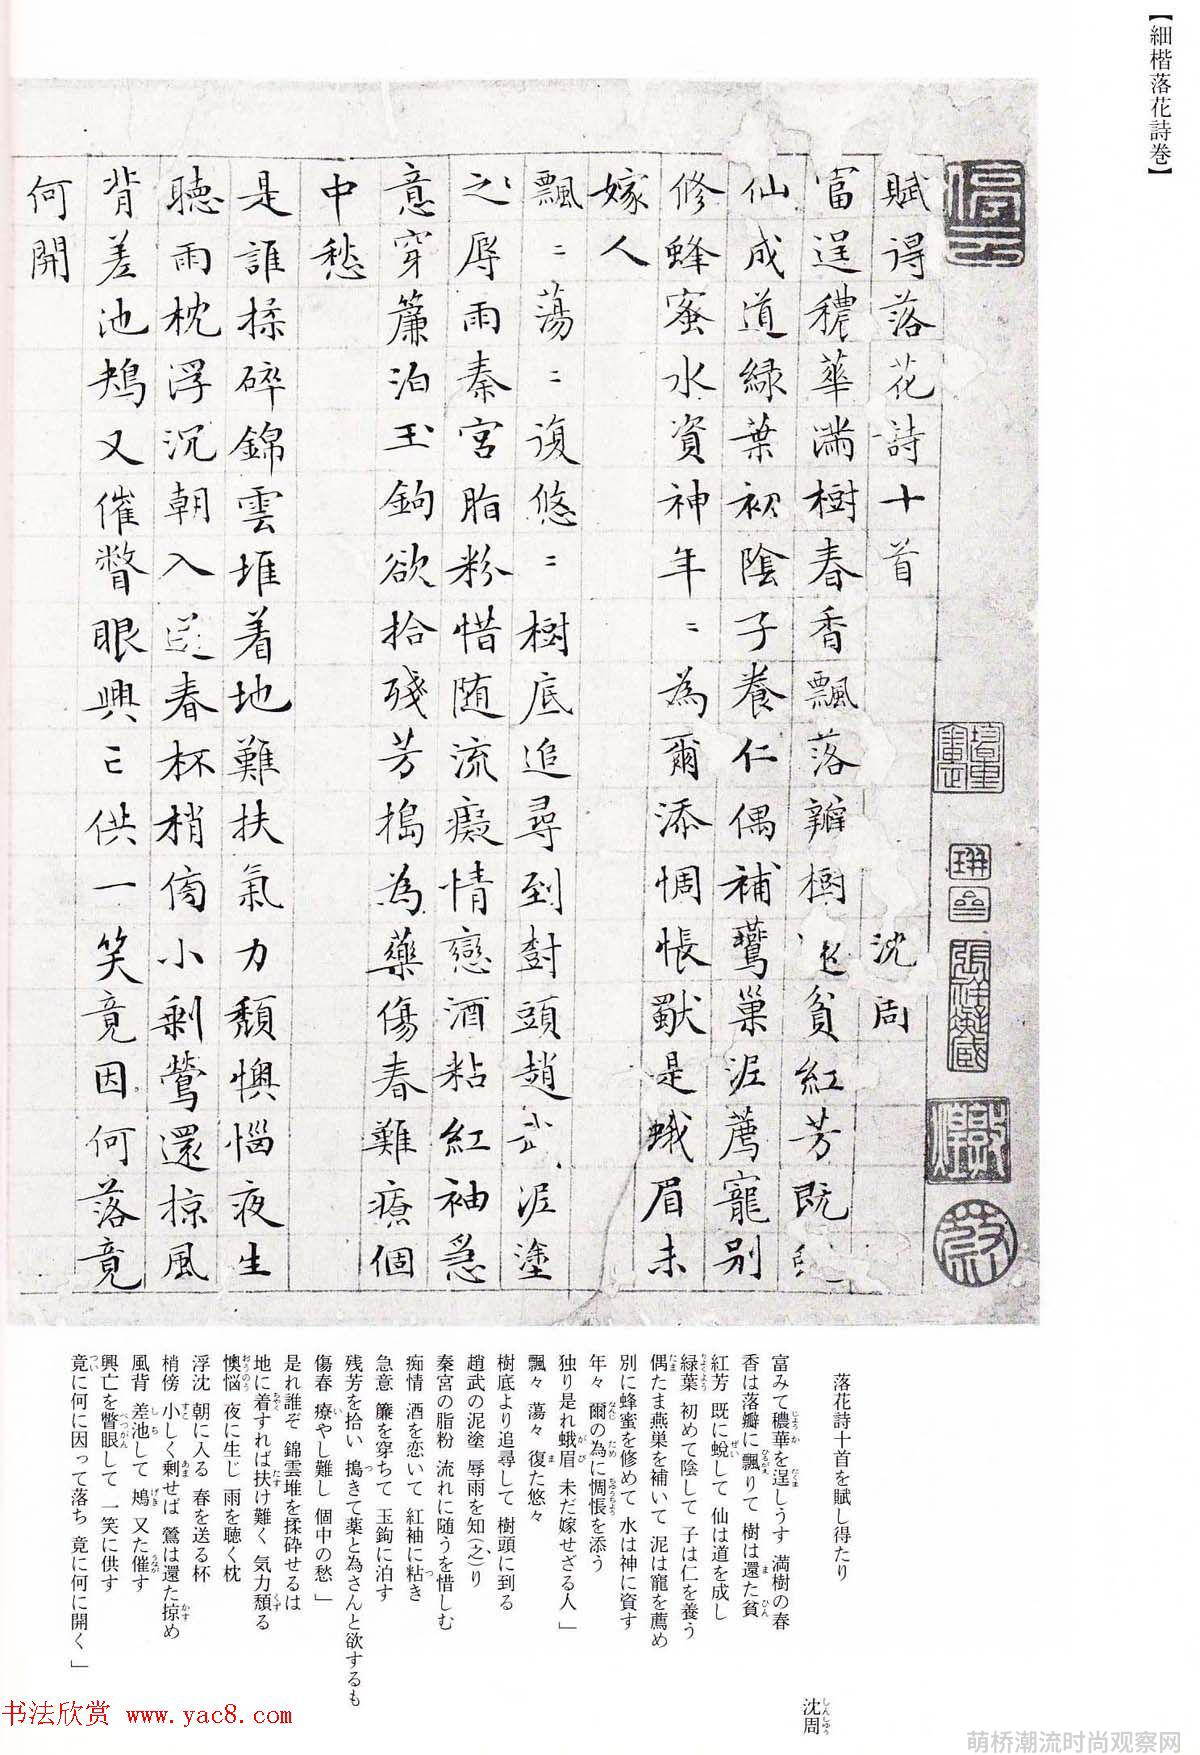 【細楷落花詩巻】
賦得落花詩十首 沈周
富逞穠華滿樹春香飄落瓣樹還貧紅芳既蛻
仙成道緑葉初陰子養仁偶補鷰巢泥薦寵别
修蜂蜜水資神年〻為爾添惆悵獸是蛾眉未
嫁人
飄〻蕩〻復悠〻樹底追尋到樹頭趙武泥塗
之辱雨秦宮脂粉惜随流癡情戀酒粘紅袖急
意穿簾泊玉鉤欲拾殘芳搗為藥傷春難療個
中愁
是誰揉碎錦雲堆着地難扶氣力頹懊惱夜生
聴雨枕浮沉朝入送春杯梢傍小剩鶯還掠風
背差池鳺又催瞥眼興亡供一笑竟因何落竟
何開
落花詩十首を賦し得たり
沈周
しんしゅう
富みて穠華を逞しうす 満樹の春
香は落瓣に飄りて 樹は還た貧
紅芳 既に蛻して 仙は道を成し
緑葉 初めて陰して 子は仁を養う
偶たま燕巣を補いて 泥は寵を薦め
別に蜂蜜を修めて 水は神に資す
年々 爾の為に惆悵を添う
独り是れ蛾眉 未だ嫁せざる人」
飄々 蕩々 復た悠々
樹底より追尋して 樹頭に到る
趙武の泥塗 辱雨を知(之)り
秦宮の脂粉 流れに随うを惜しむ
痴情 酒を恋いて 紅袖に粘き
急意 簾を穿ちて 玉鉤に泊す
残芳を拾い 搗きて薬と為さんと欲するも
傷春 療やし難し 個中の愁」
是れ誰ぞ 錦雲堆を揉砕せるは
地に着すれば扶け難く 気力頽る
懊悩 夜に生じ 雨を聴く枕
浮沈 朝に入る 春を送る杯
梢傍 小しく剰せば 鶯は還た掠め
風背 差池して 鳺 又た催す
興亡を瞥眼して 一笑に供す
竟に何に因って落ち 竟に何に開く」
书法欣赏 www.yac8.com
萌桥潮流时尚观察网